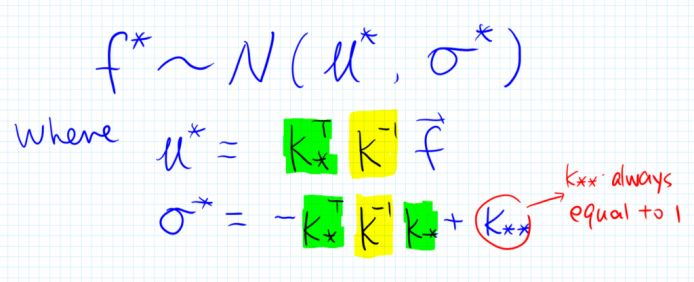 f* ~ N(μ*, σ*)
where μ* = K⊤* K⁻¹ f⃗
σ* = -K⊤* K⁻¹ K* + K**
K** always
equal to 1